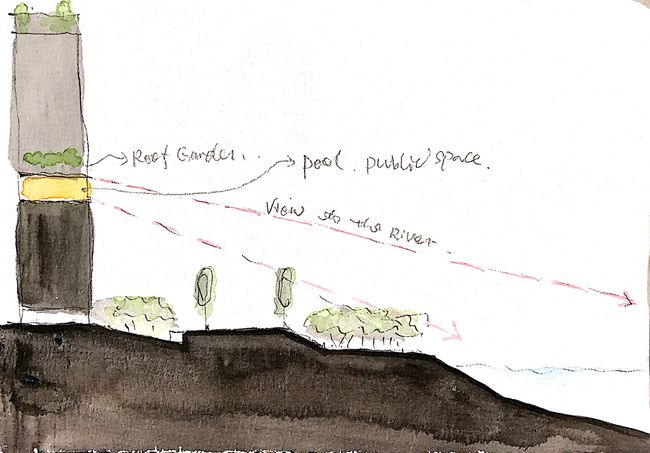 Roof Garden..
pool. public space.
View to the River.